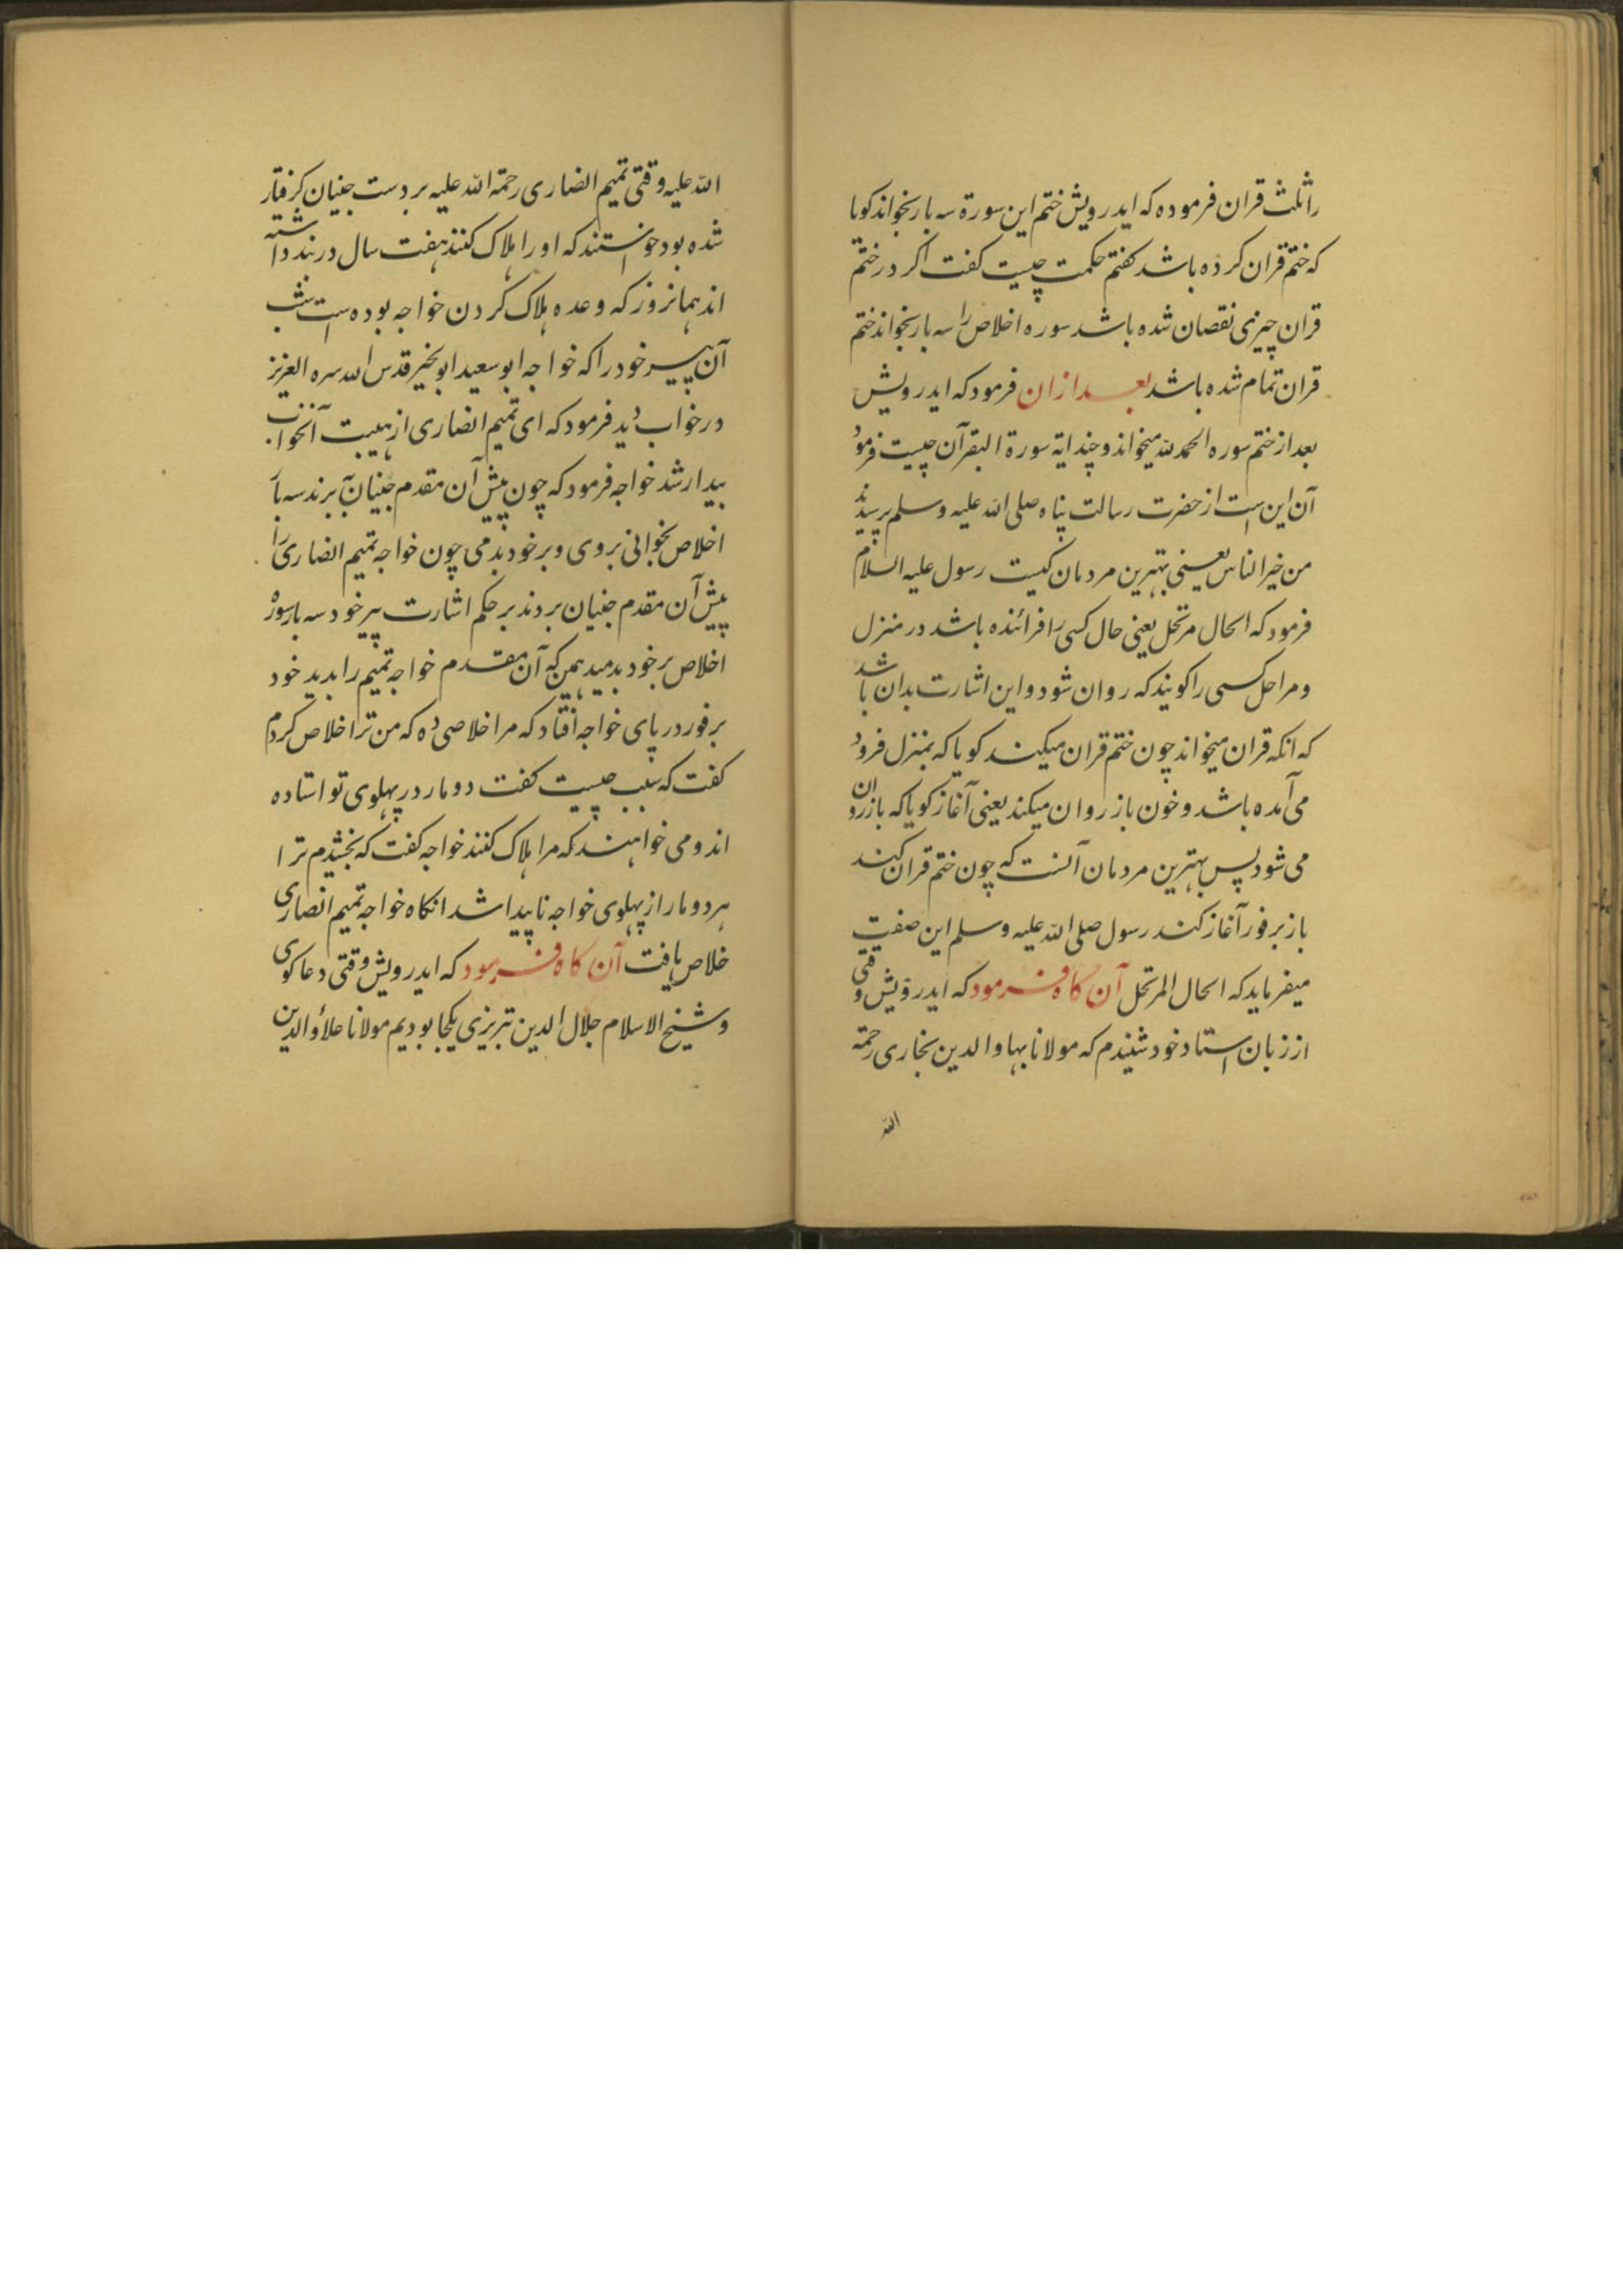 را ثلث قران فرموده که ایدرویش ختم این سورة سه بار بخواند کویا
که ختم قران کرده باشد کفتم حکمت چیست کفت اکر در ختم
قران چیزی نقصان شده باشد سوره اخلاص را سه بار بخواند ختم
قران تمام شده باشد بعد ازان فرمود که ایدرویش
بعد از ختم سوره الحمد لله میخواند و چند ایة سورة البقر آن چیست فرمود
آن این است از حضرت رسالت پناه صلی الله علیه وسلم پرسیدند
من خیر الناس یعنی بهترین مردمان کیست رسول علیه السلام
فرمود که الحال مرتحل یعنی حال کسی را فرائنده باشد در منزل
و مراحل کسی را کویند که روان شود و این اشارت بدان باشد
که انکه قران میخواند چون ختم قران میکیند کویا که بمنزل فرود
می آمده باشد و خون باز روان میکند یعنی آغاز کویا که باز روان
می شود پس بهترین مردمان آنست که چون ختم قران کند
باز بر فور آغاز کند رسول صلی الله علیه وسلم این صفت
میفرماید که الحال المرتحل آن کاه فرمود که ایدرویش وقتی
از زبان استاد خود شنیدم که مولانا بهاوالدین بخاری رحمة
الله
الله علیه وقتی تمیم انصاری رحمة الله علیه بر دست جنیان کرفتار
شده بود خواستند که او را هلاک کنند هفت سال در بند داشته
اند همانروز که وعده هلاک کردن خواجه بوده است شب
آن پیر خود را که خواجه ابو سعید ابو الخیر قدس الله سره العزیز
در خواب دید فرمود که ای تمیم انصاری از هیبت آنخواب
بیدار شد خواجه فرمود که چون پیش آن مقدم جنیان برند سه بار
اخلاص بخوانی بروی و بر خود بدمی چون خواجه تمیم انصاری را
پیش آن مقدم جنیان بردند بر حکم اشارت پیر خود سه بار سورة
اخلاص بر خود بدمید همین که آن مقدم خواجه تمیم را بدید خود
بر فور در پای خواجه افتاد که مرا خلاصی ده که من ترا خلاص کردم
کفت که سبب چیست کفت دو مار در پهلوی تو استاده
اند و می خواهند که مرا هلاک کنند خواجه کفت که بخشیدم ترا
هر دو مار از پهلوی خواجه ناپیدا شد انکاه خواجه تمیم انصاری
خلاص یافت آن کاه فرمود که ایدرویش وقتی دعا کوی
و شیخ الاسلام جلال الدین تبریزی یکجا بودیم مولانا علاؤالدین